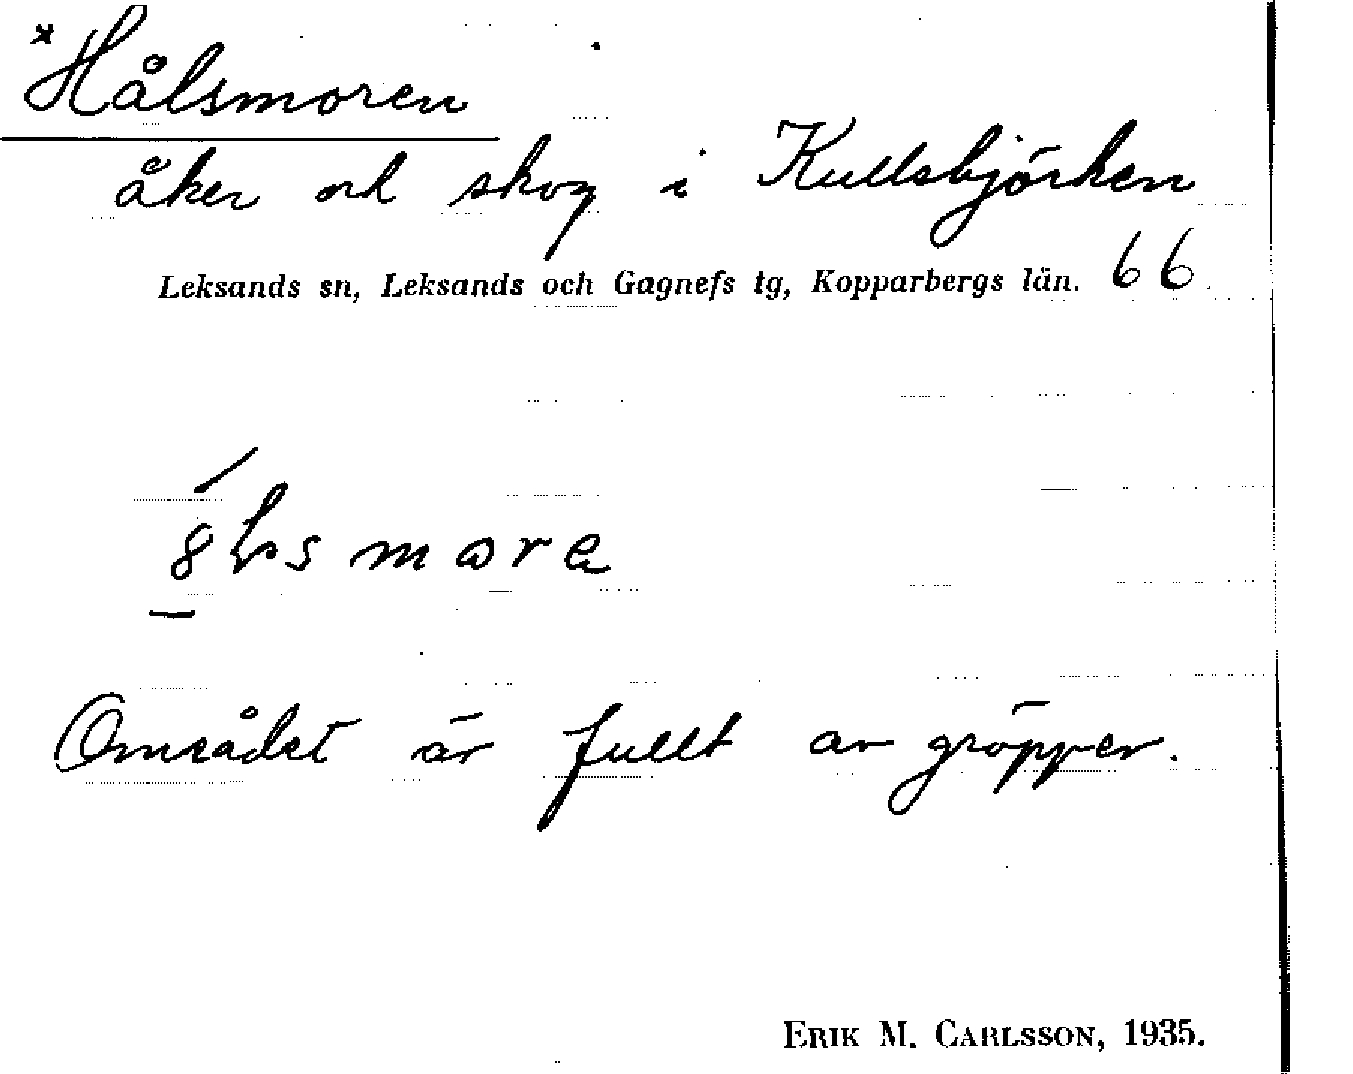 *Hålsmoren
åker och skog i Kullsbjörken
Leksands sn, Leksands och Gagnefs tg, Kopparbergs län. 66
Området är fullt av gröpper.
ERIK M. CARLSSON, 1935.